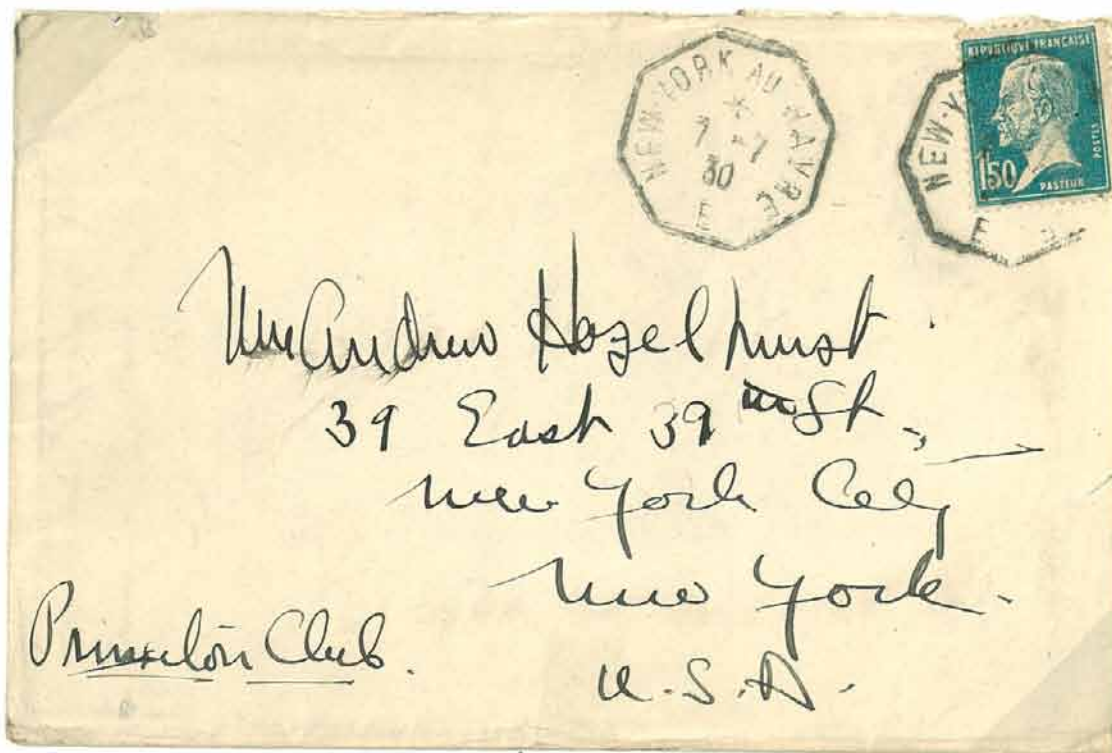 NEW-YORK AU HAVRE
*
7 -7
30
E
REPUBLIQUE FRANÇAISE
POSTES
1F50
PASTEUR
NEW-Y
E
Mr Andrew Hazelhurst
39 East 39th St.,
New York City
New York.
U.S.A.
Princeton Club.